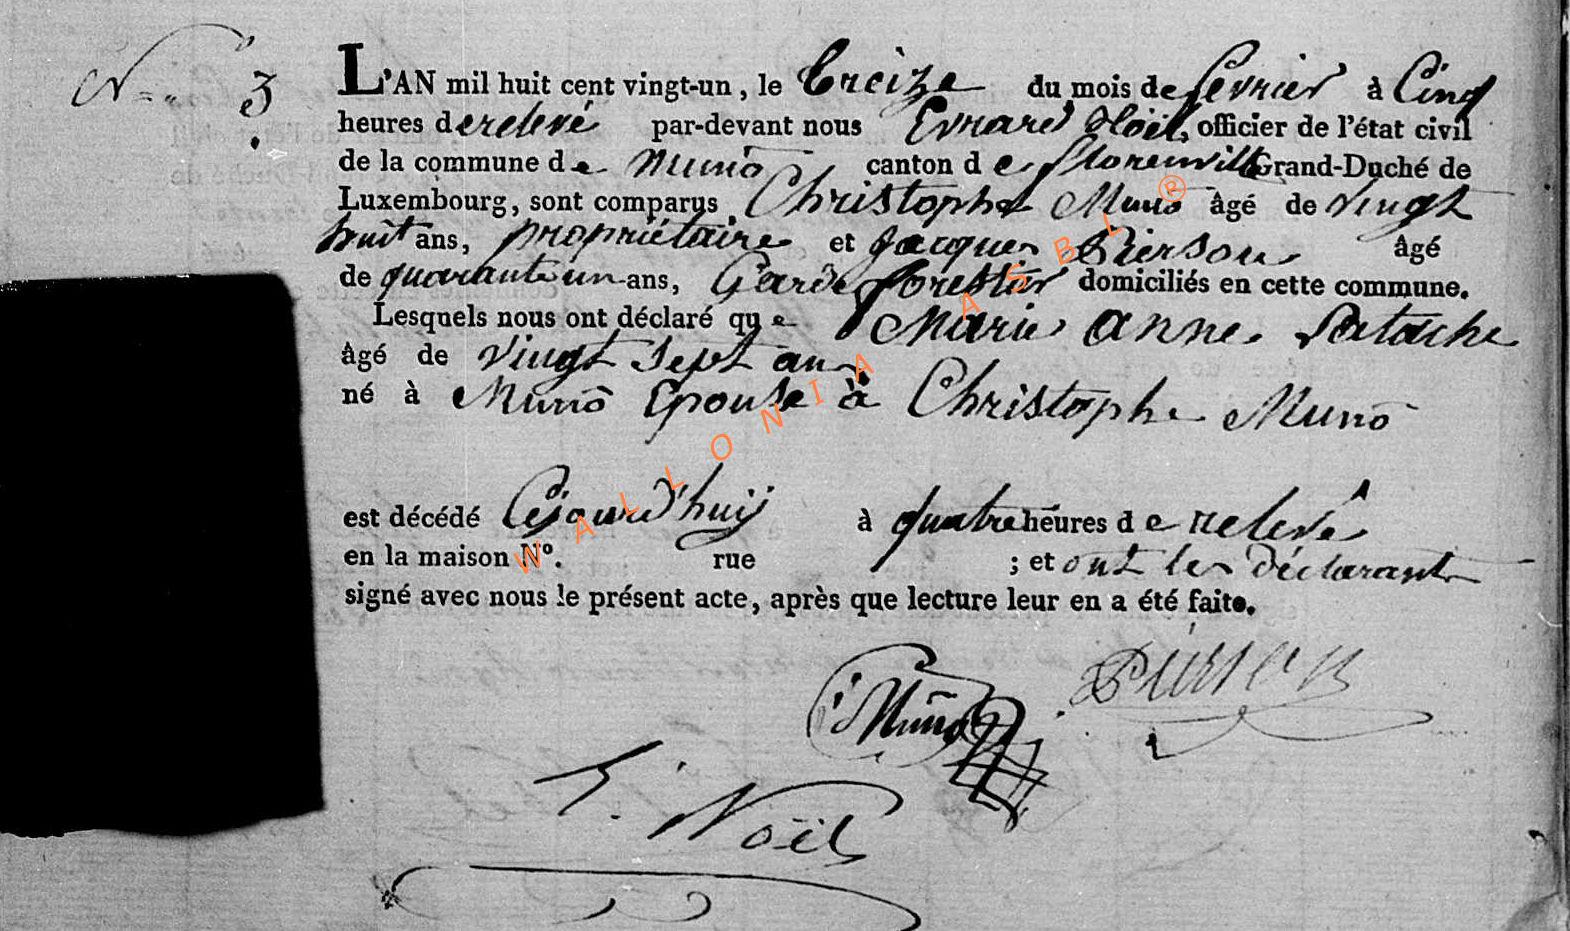 N.° 3.
L'AN mil huit cent vingt-un, le treize du mois de fevrier à Cinq
heures de relevé par-devant nous Evrard Noël, officier de l'état civil
de la commune de Muno canton de florenville Grand-Duché de
Luxembourg, sont comparus Christophe Muno âgé de vingt
huit ans, propriétaire et Jacques Pierson âgé
de quarante un ans, Garde forestier domiciliés en cette commune.
Lesquels nous ont déclaré que Marie anne Patache
âgé de vingt sept ans
né à Muno Epouse à Christophe Muno
est décédé Cejourd'huij à quatre heures de relevé
en la maison N°. rue ; et ont les déclarants
signé avec nous le présent acte, après que lecture leur en a été faite.
C Muno Pierson
E. Noël
WALLONIA ASBL ®